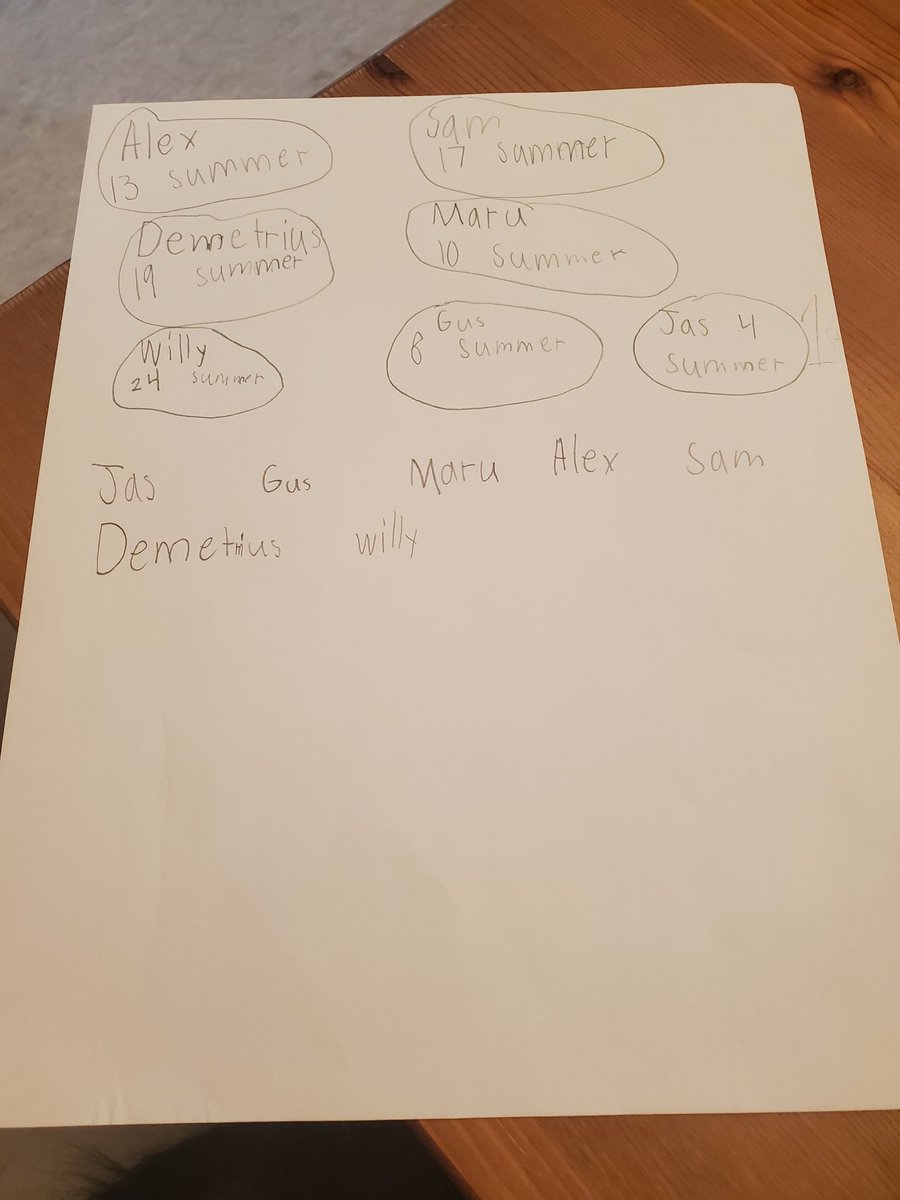 Alex
13 summer
Sam
17 summer
Demetrius
19 summer
Maru
10 summer
Willy
24 summer
Gus
8 summer
Jas 4
summer
1
Jas Gus Maru Alex Sam
Demetrius willy